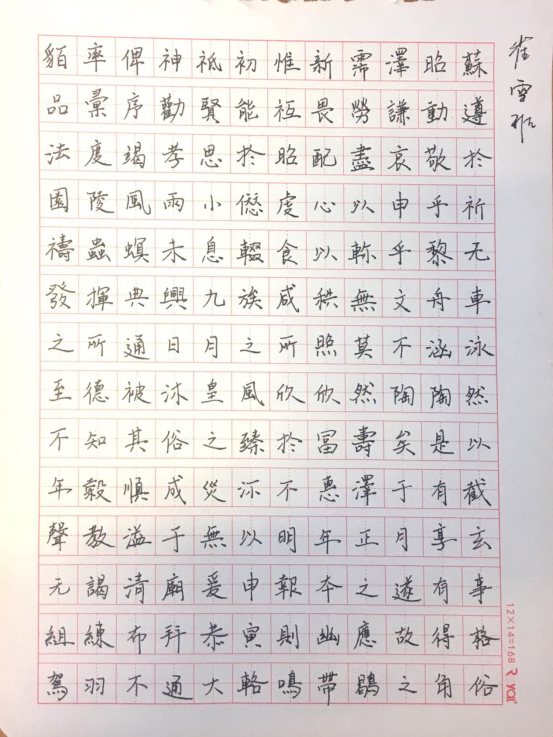 貊率俾神祇初惟新霈澤昭蘇
品彙序勸賢能祗畏勞謙動遵
法度竭孝思於昭配盡哀敬於
園陵風雨小愆虔心以申乎祈
禱蟲螟未息輟食以軫乎黎无
發揮典興九族咸秩無文舟車
之所通日月之所照莫不涵泳
至德被沐皇風欣欣然陶陶然
不知其俗之臻於富壽矣是以
年穀順成災沴不惠澤于有截
聲教溢于無以明年正月享玄
元謁清廟爰申報本之遂有事
組練布拜恭寅則幽應故得格
駕羽不通大輅鳴帶鶡之角俗
雀雪
12×14=168